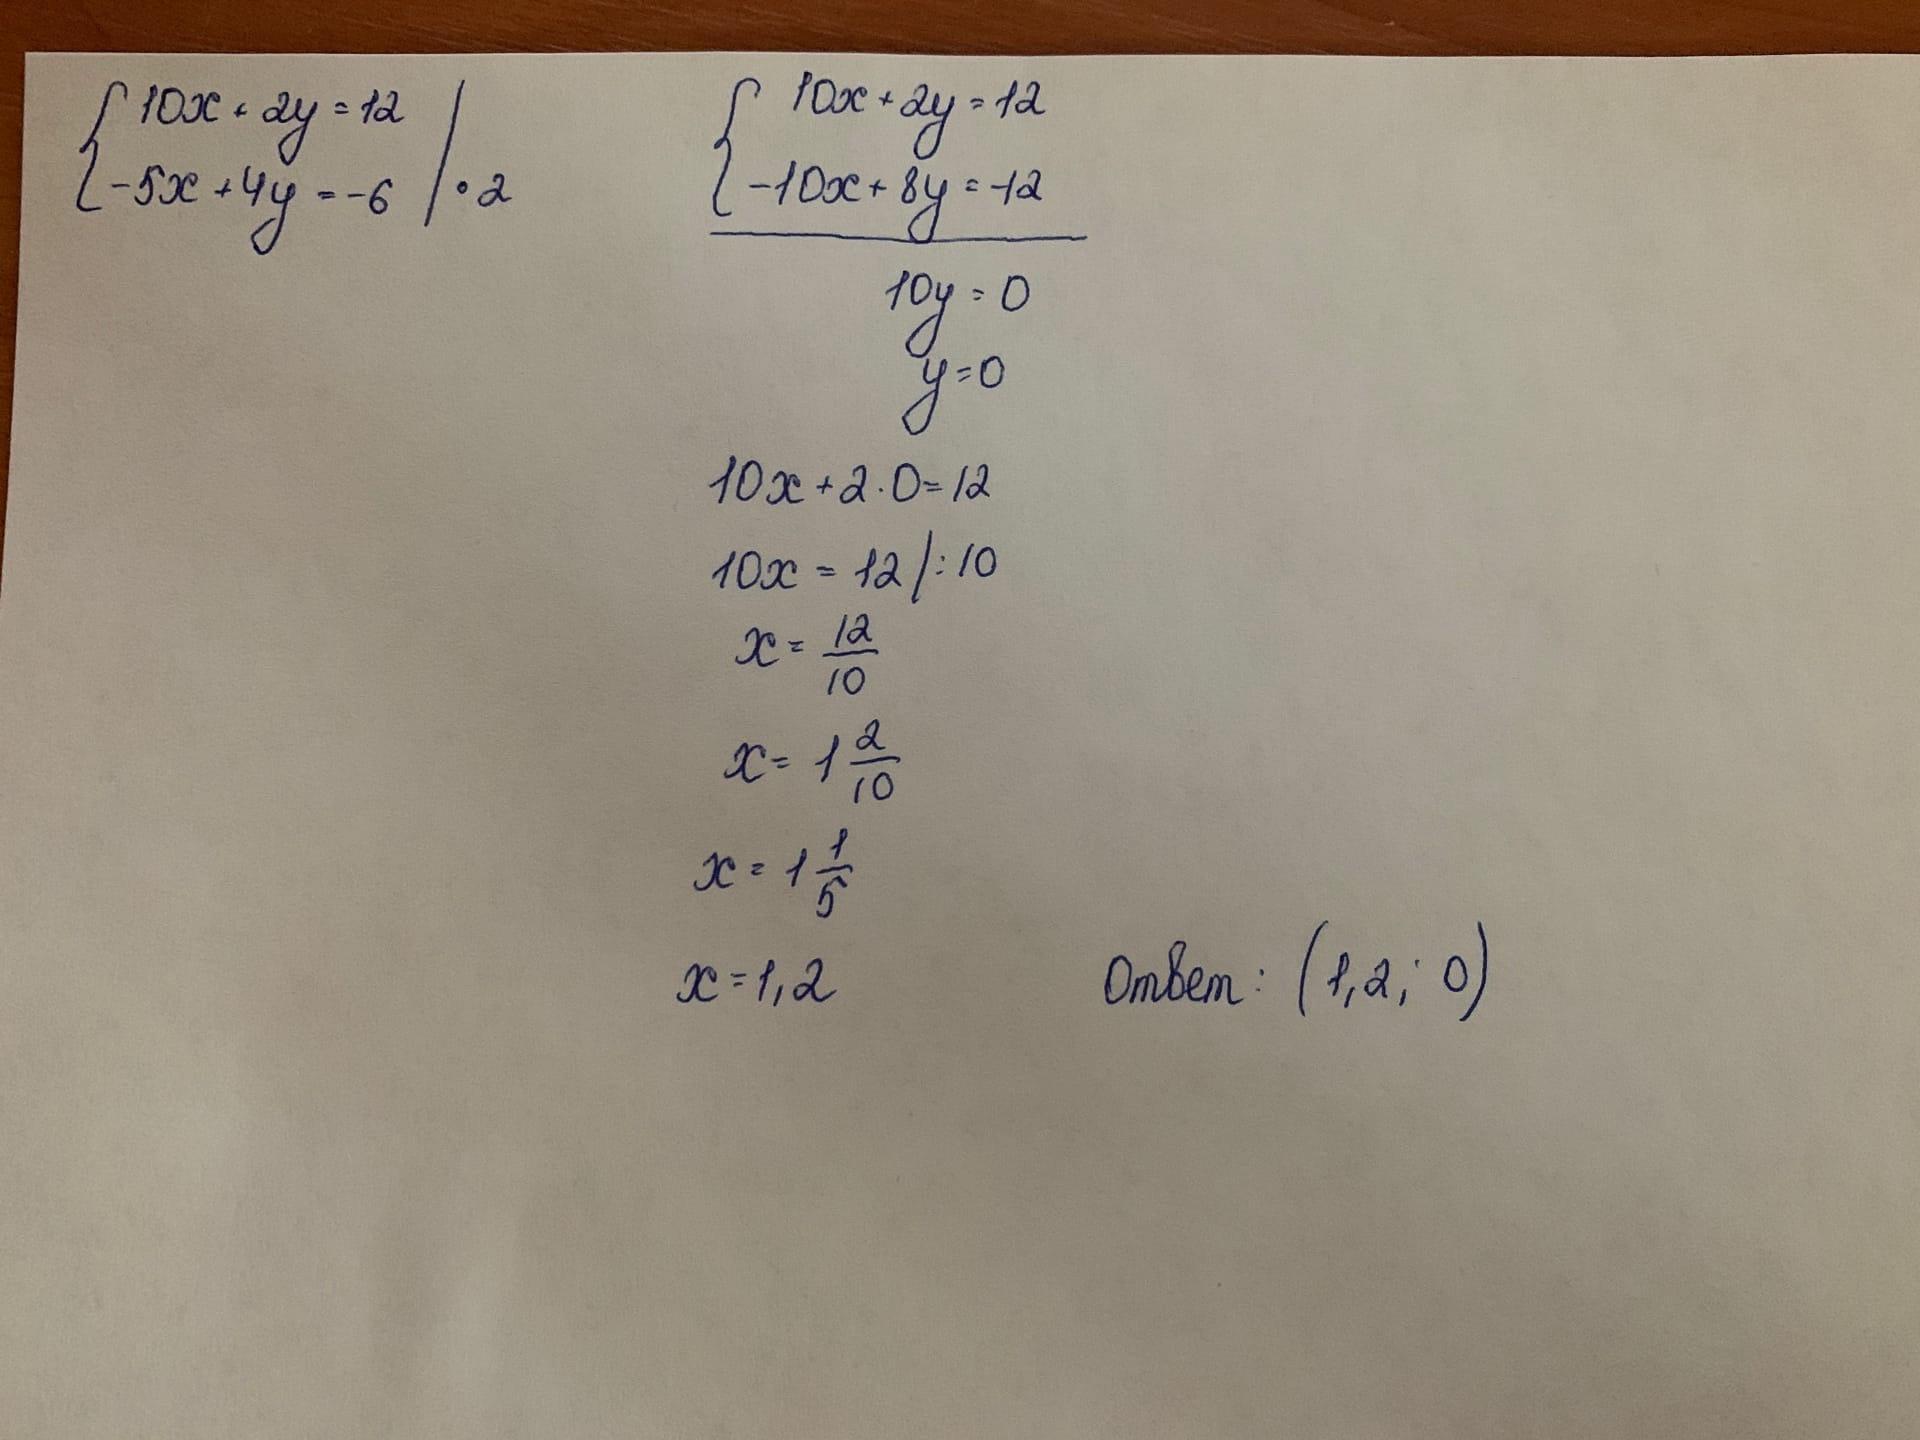 { 10x + 2y = 12
{ -5x + 4y = -6 | · 2
{ 10x + 2y = 12
{ -10x + 8y = -12
10y = 0
y = 0
10x + 2 · 0 = 12
10x = 12 | : 10
x = 12/10
x = 1 2/10
x = 1 1/5
x = 1,2
Ответ: (1,2; 0)